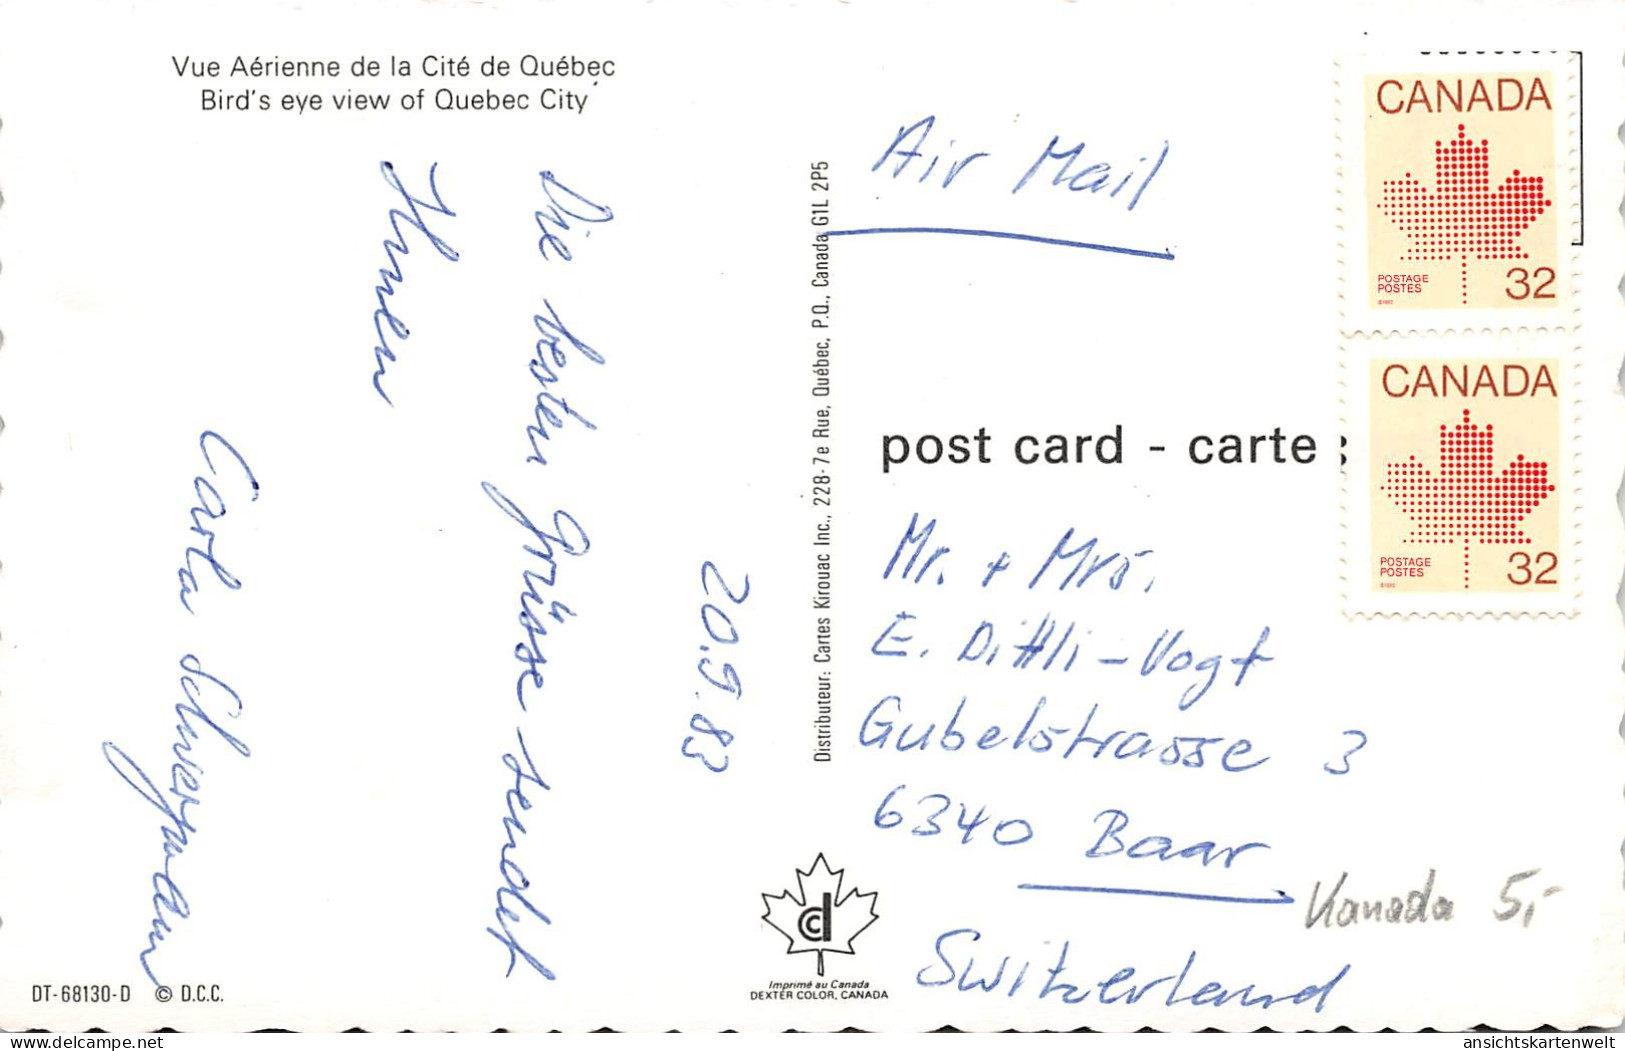 Vue Aérienne de la Cité de Québec
Bird's eye view of Quebec City
20.9.83
Die besten Grüsse sendet
Ihnen
Carla Schwerzmann
DT-68130-D © D.C.C.
Distributeur: Cartes Kirouac Inc., 228-7e Rue, Québec, P.Q., Canada G1L 2P5
Imprimé au Canada
DEXTER COLOR, CANADA
Air Mail
CANADA
POSTAGE
POSTES
32
CANADA
POSTAGE
POSTES
32
post card - carte
Mr. + Mrs.
E. Dittli-Vogt
Gubelstrasse 3
6340 Baar
Switzerland
Kanada 5,-
delcampe.net
ansichtskartenwelt